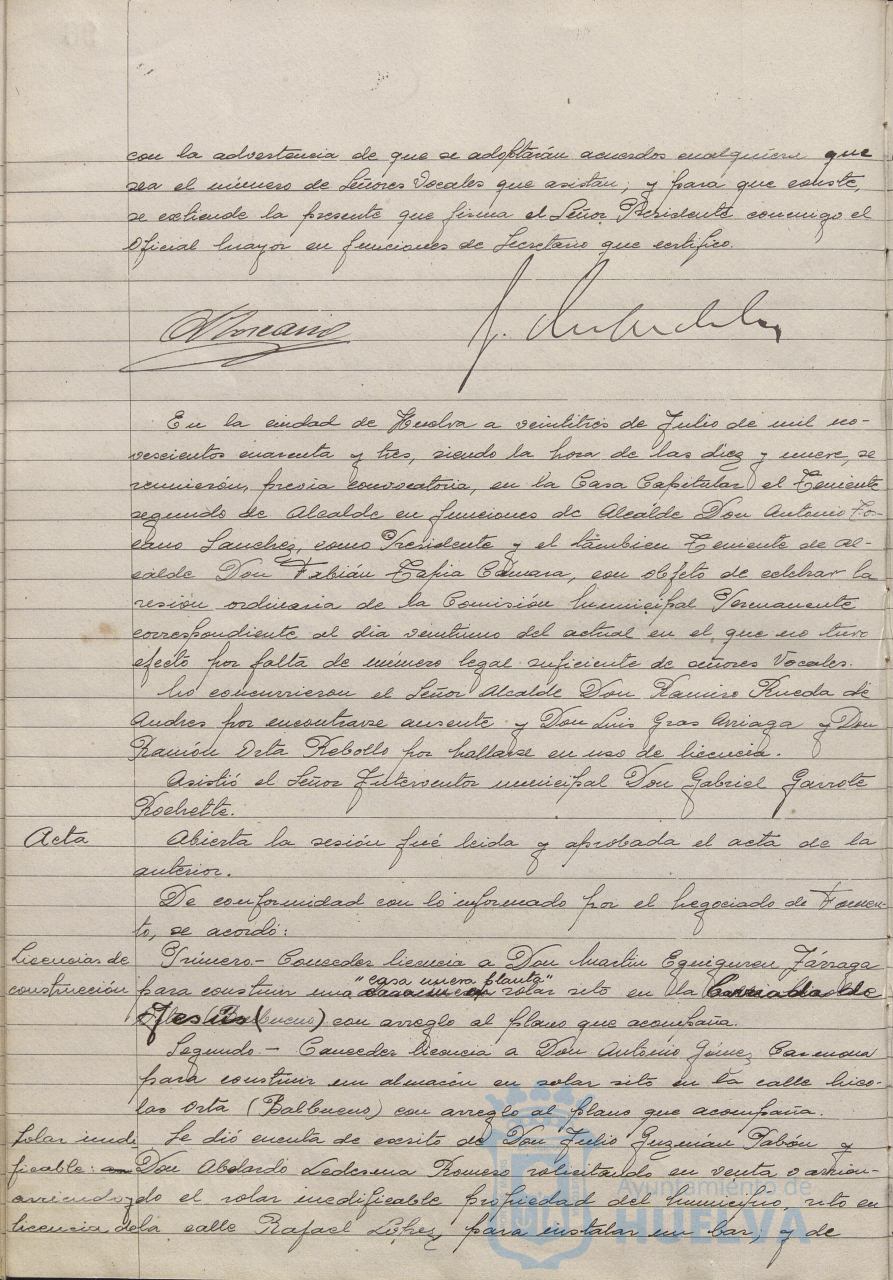 con la advertencia de que se adoptarán acuerdos cualquiera que
sea el número de Señores Vocales que asistan; y para que conste,
se extiende la presente que firma el Señor Presidente conmigo el
Oficial Mayor en funciones de Secretario que certifico.
En la ciudad de Huelva a veintitres de Julio de mil no-
vescientos cuarenta y tres, siendo la hora de las diez y nueve, se
reunieron, previa convocatoria, en la Casa Capitular el Teniente
segundo de Alcalde en funciones de Alcalde Don Antonio To-
cano Sanchez, como Presidente y el tambien Teniente de Al-
calde Don Fabián Tapia Cámara, con objeto de celebrar la
sesión ordinaria de la Comisión Municipal Permanente
correspondiente al dia veintiuno del actual en el que no tuvo
efecto por falta de número legal suficiente de señores Vocales.
No concurrieron el Señor Alcalde Don Ramiro Rueda de
Andres por encontrarse ausente y Don Luis Gras Arriaga y Don
Ramón Orta Rebollo por hallarse en uso de licencia.
Asistió el Señor Interventor municipal Don Gabriel Garrote
Rochette.
Acta
Abierta la sesión fué leida y aprobada el acta de la
anterior.
De conformidad con lo informado por el Negociado de Fomen-
to, se acordó:
Licencias de
construcción
Primero.- Conceder licencia a Don Martin Eguiguren Zárraga
para construir una "casa nueva planta" solar sito en la Barriada de
Jesús (Balbueno) con arreglo al plano que acompaña.
Segundo.- Conceder licencia a Don Antonio Gómez Casenova
para construir un almacén en solar sito en la calle Nico-
las Orta (Balbueno) con arreglo al plano que acompaña.
Solar inedi-
ficable:
arriendo y
licencia de
Se dió cuenta de escrito de Don Julio Guzmán Pabón y
Don Abelardo Ledesma Romero solicitando en venta o arrien-
do el solar inedificable propiedad del Municipio, sito en
la calle Rafael López, para instalar un bar; y de
Ayuntamiento de
HUELVA